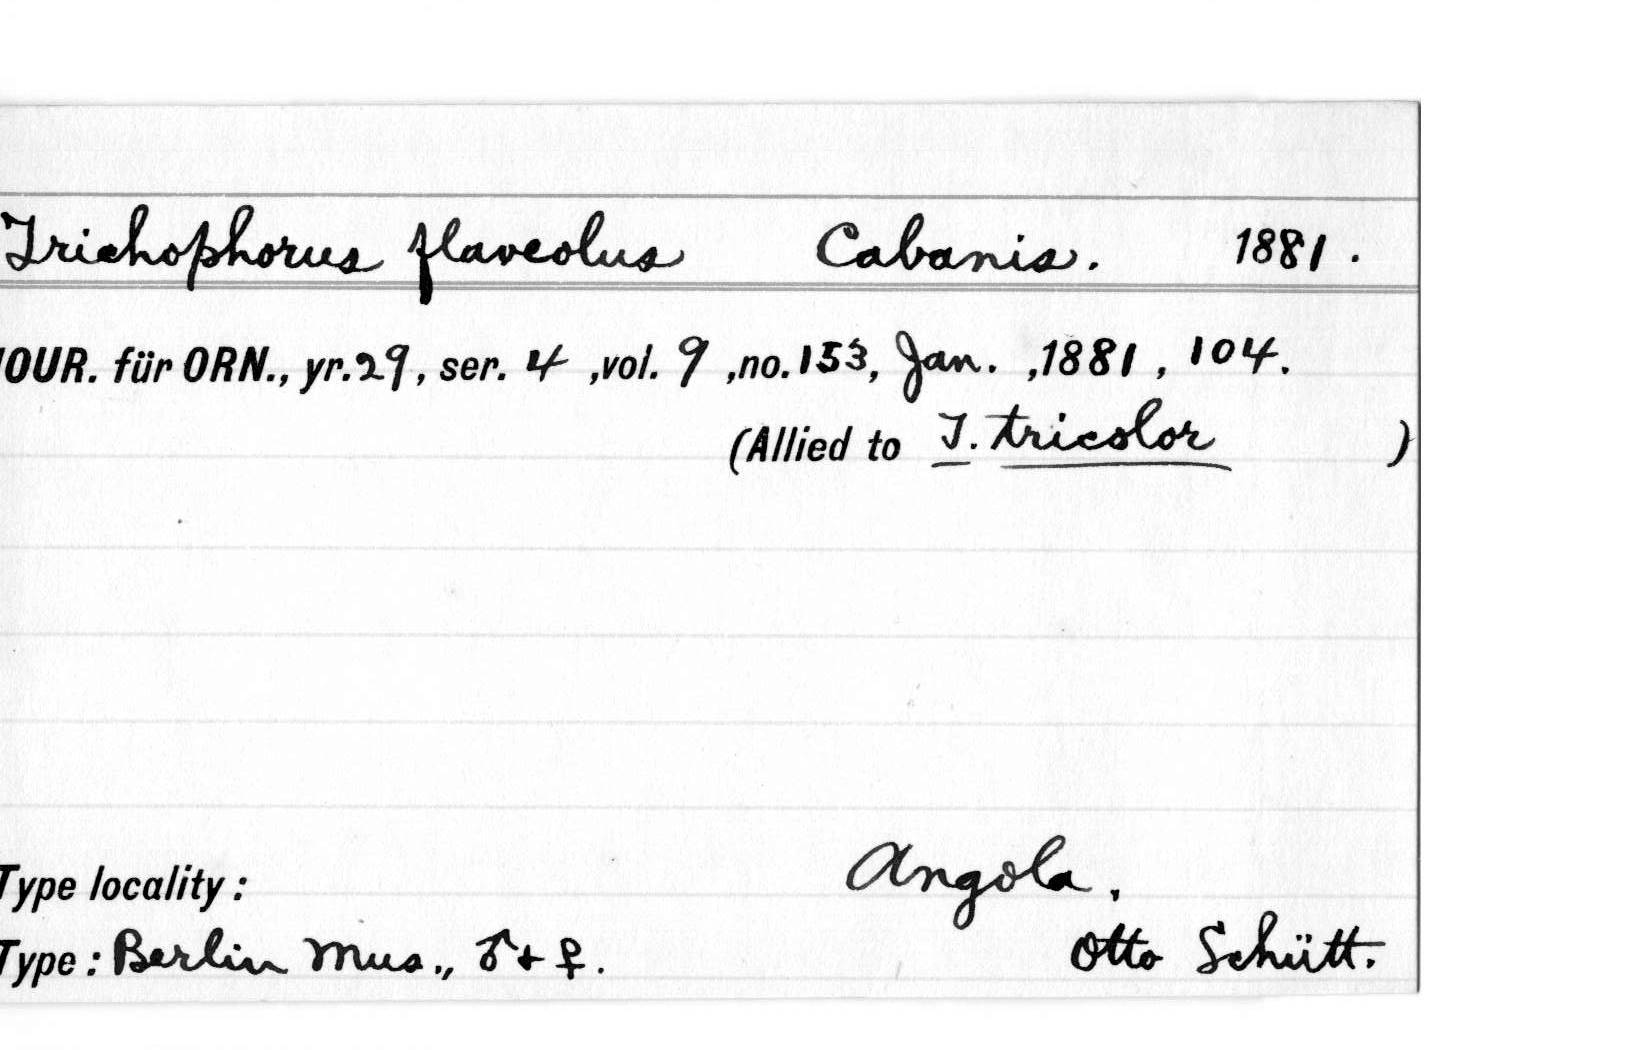 Trichophorus flaveolus Cabanis. 1881.
JOUR. für ORN., yr. 29, ser. 4, vol. 9, no. 153, Jan., 1881, 104.
(Allied to T. tricolor )
Type locality: Angola,
Type: Berlin Mus., ♂ + ♀. Otto Schütt.